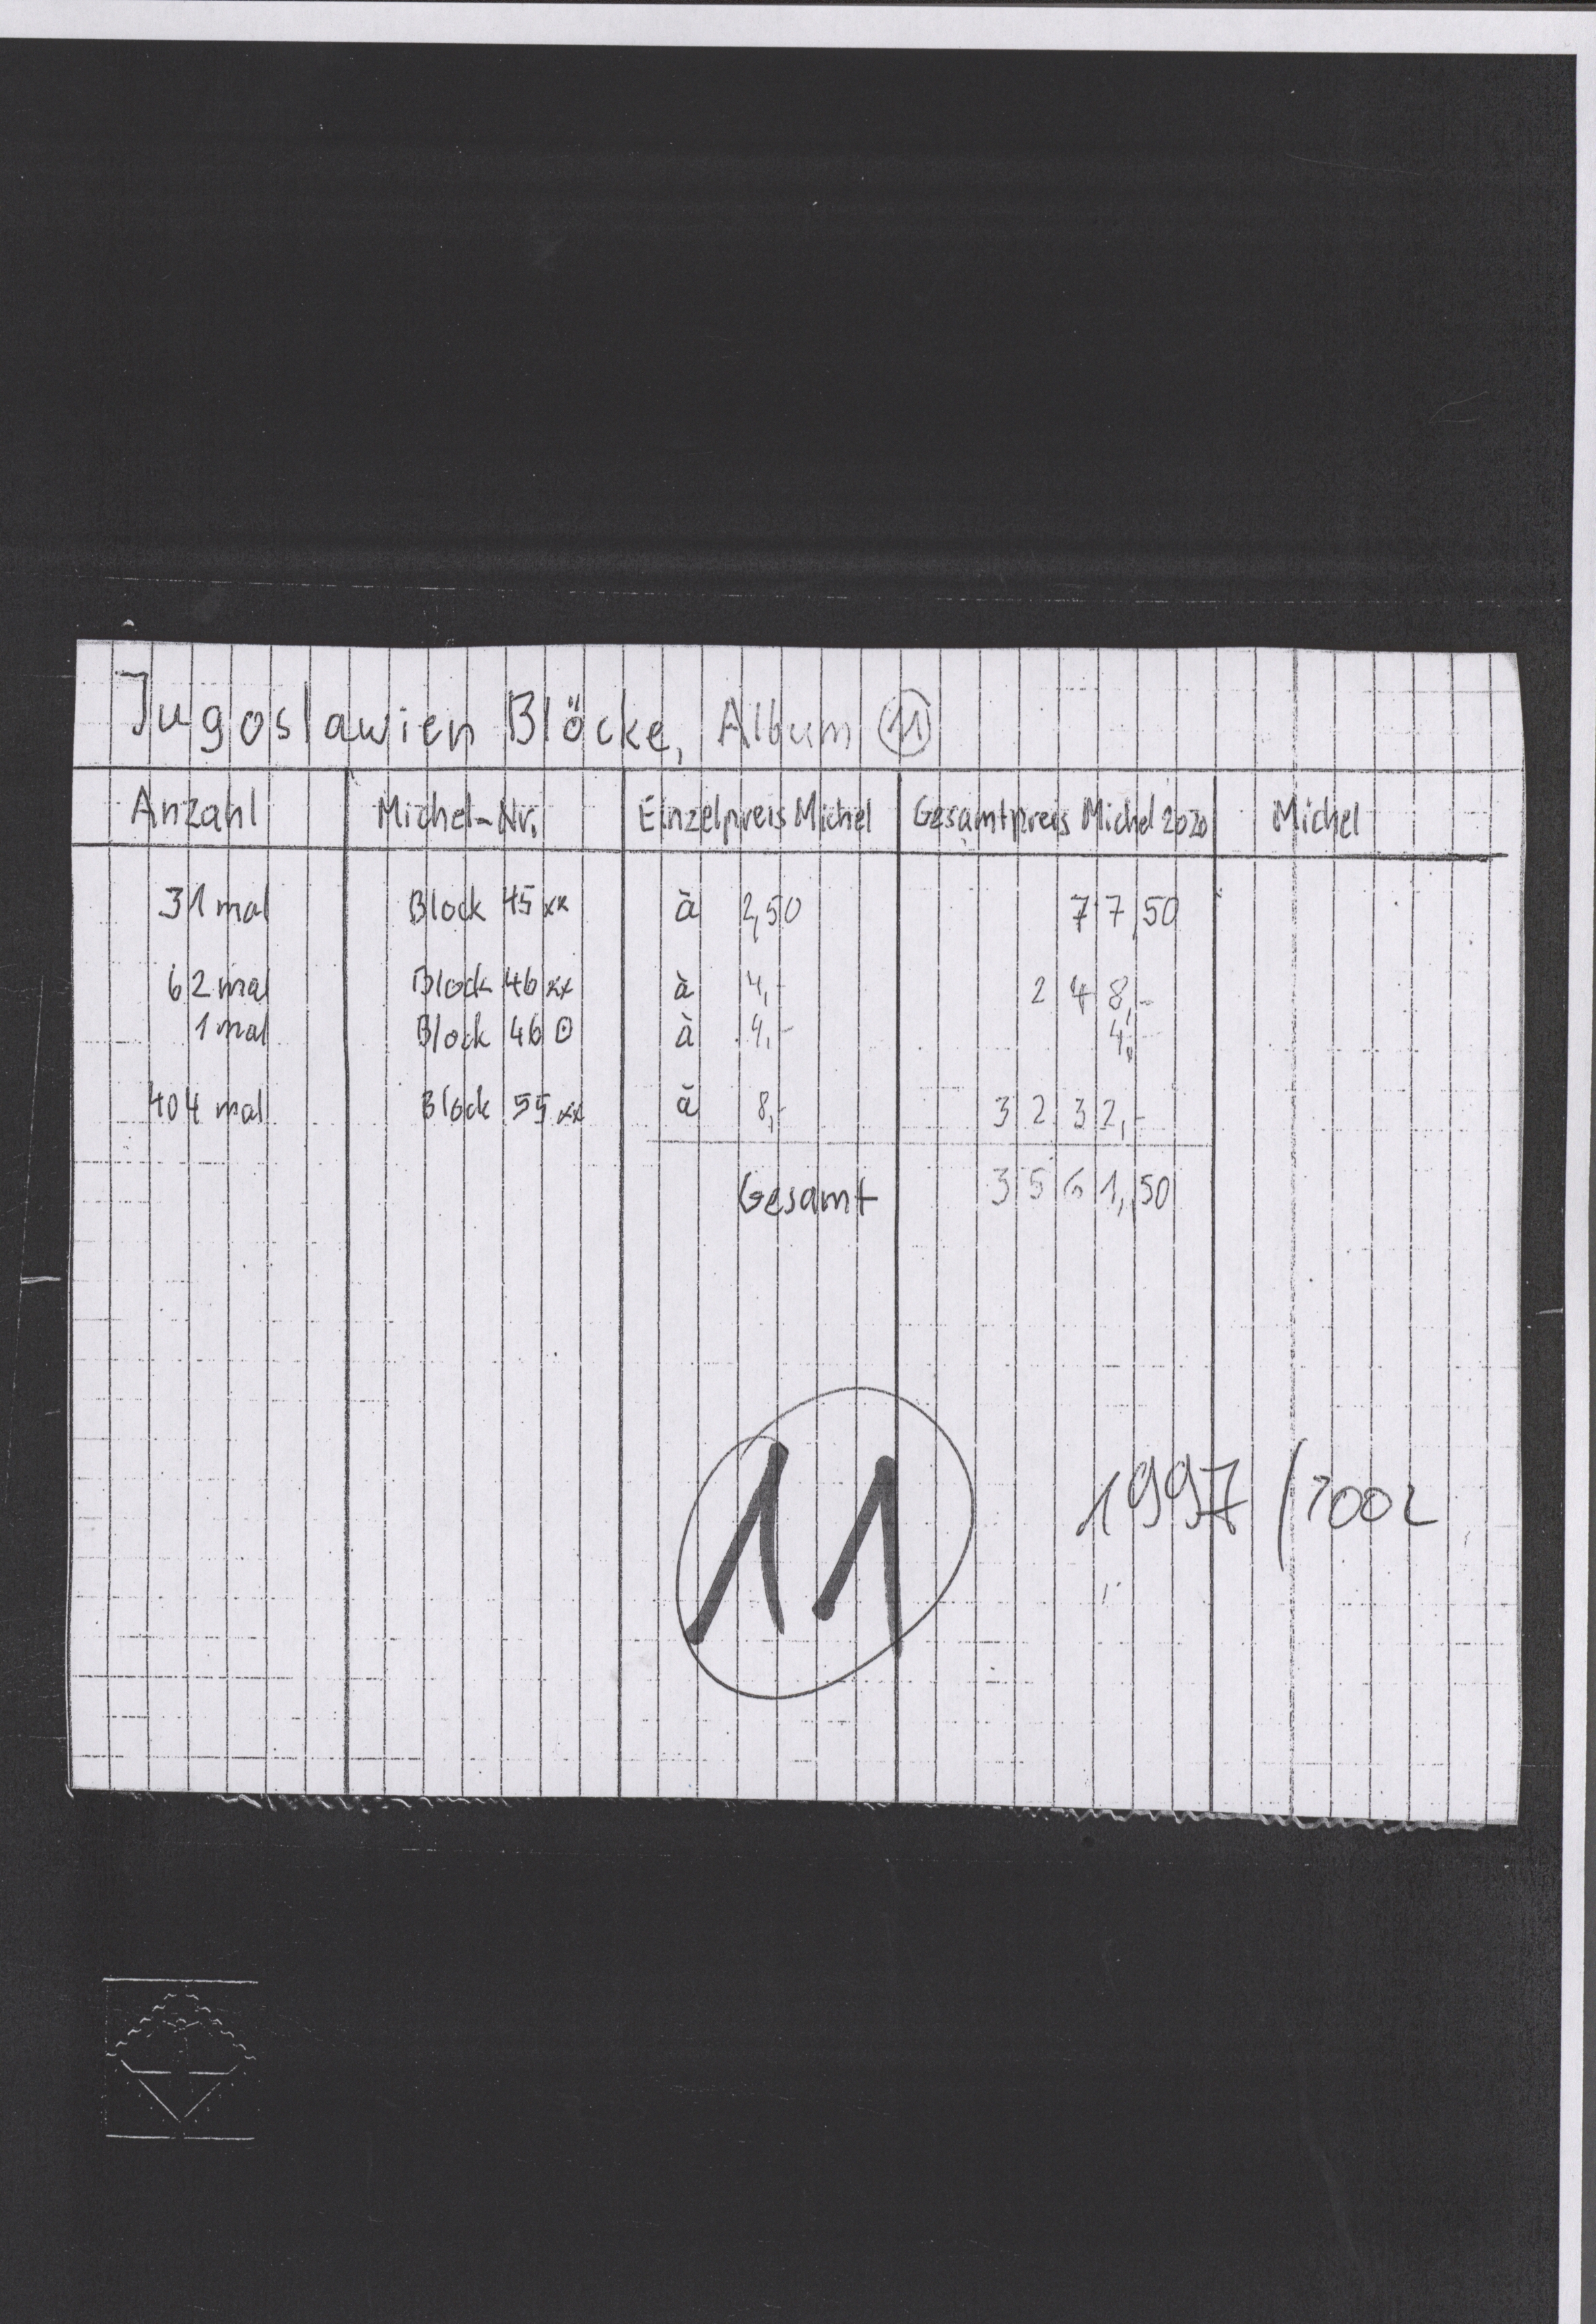 Jugoslawien Blöcke, Album 11
Anzahl Michel-Nr. Einzelpreis Michel Gesamtpreis Michel 2020 Michel
31 mal Block 45 xx à 2,50 77,50
62 mal Block 46 xx à 4,- 248,-
1 mal Block 46 ⊙ à 4,- 4,-
404 mal Block 55 xx à 8,- 3232,-
Gesamt 3561,50
11
1997/2002